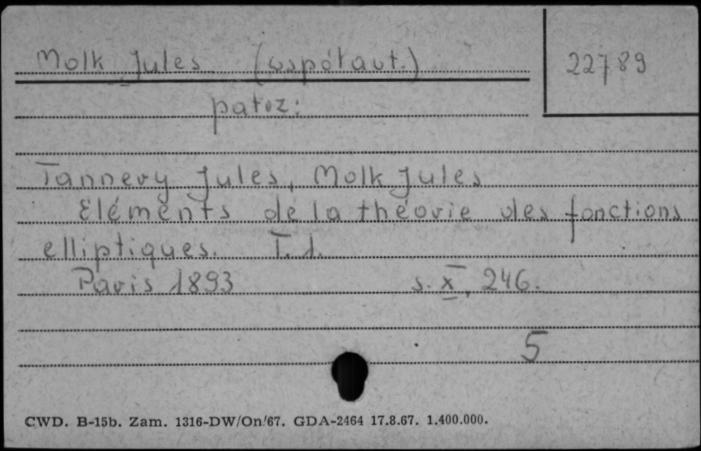 Molk Jules (współaut.) 22789
patrz:
Tannery Jules, Molk Jules
Eléments de la théorie des fonctions
elliptiques. T. 1.
Paris 1893 s. X, 246.
5
CWD. B-15b. Zam. 1316-DW/On/67. GDA-2464 17.8.67. 1.400.000.